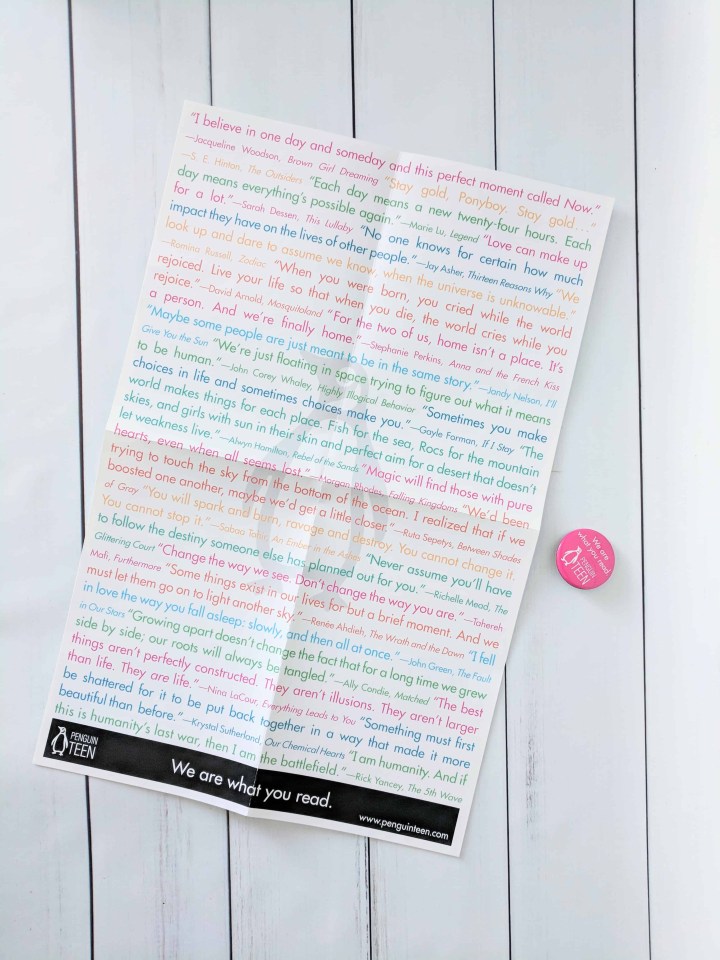 "I believe in one day and someday and this perfect moment called Now."
—Jacqueline Woodson, Brown Girl Dreaming "Stay gold, Ponyboy. Stay gold . . ."
—S. E. Hinton, The Outsiders "Each day means a new twenty-four hours. Each
day means everything's possible again."—Marie Lu, Legend "Love can make up
for a lot."—Sarah Dessen, This Lullaby "No one knows for certain how much
impact they have on the lives of other people."—Jay Asher, Thirteen Reasons Why "We
look up and dare to assume we know, when the universe is unknowable."
—Romina Russell, Zodiac "When you were born, you cried while the world
rejoiced. Live your life so that when you die, the world cries while you
rejoice."—David Arnold, Mosquitoland "For the two of us, home isn't a place. It's
a person. And we're finally home."—Stephanie Perkins, Anna and the French Kiss
"Maybe some people are just meant to be in the same story."—Jandy Nelson, I'll
Give You the Sun "We're just floating in space trying to figure out what it means
to be human."—John Corey Whaley, Highly Illogical Behavior "Sometimes you make
choices in life and sometimes choices make you."—Gayle Forman, If I Stay "The
world makes things for each place. Fish for the sea, Rocs for the mountain
skies, and girls with sun in their skin and perfect aim for a desert that doesn't
let weakness live."—Alwyn Hamilton, Rebel of the Sands "Magic will find those with pure
hearts, even when all seems lost."—Morgan Rhodes, Falling Kingdoms "We'd been
trying to touch the sky from the bottom of the ocean. I realized that if we
boosted one another, maybe we'd get a little closer."—Ruta Sepetys, Between Shades
of Gray "You will spark and burn, ravage and destroy. You cannot change it.
You cannot stop it."—Sabaa Tahir, An Ember in the Ashes "Never assume you'll have
to follow the destiny someone else has planned out for you."—Richelle Mead, The
Glittering Court "Change the way we see. Don't change the way you are."—Tahereh
Mafi, Furthermore "Some things exist in our lives for but a brief moment. And we
must let them go on to light another sky."—Renée Ahdieh, The Wrath and the Dawn "I fell
in love the way you fall asleep: slowly, and then all at once."—John Green, The Fault
in Our Stars "Growing apart doesn't change the fact that for a long time we grew
side by side; our roots will always be tangled."—Ally Condie, Matched "The best
things aren't perfectly constructed. They aren't illusions. They aren't larger
than life. They are life."—Nina LaCour, Everything Leads to You "Something must first
be shattered for it to be put back together in a way that made it more
beautiful than before."—Krystal Sutherland, Our Chemical Hearts "I am humanity. And if
this is humanity's last war, then I am the battlefield."—Rick Yancey, The 5th Wave
PENGUIN
TEEN
We are what you read.
www.penguinteen.com
We are
what you read.
PENGUIN
TEEN